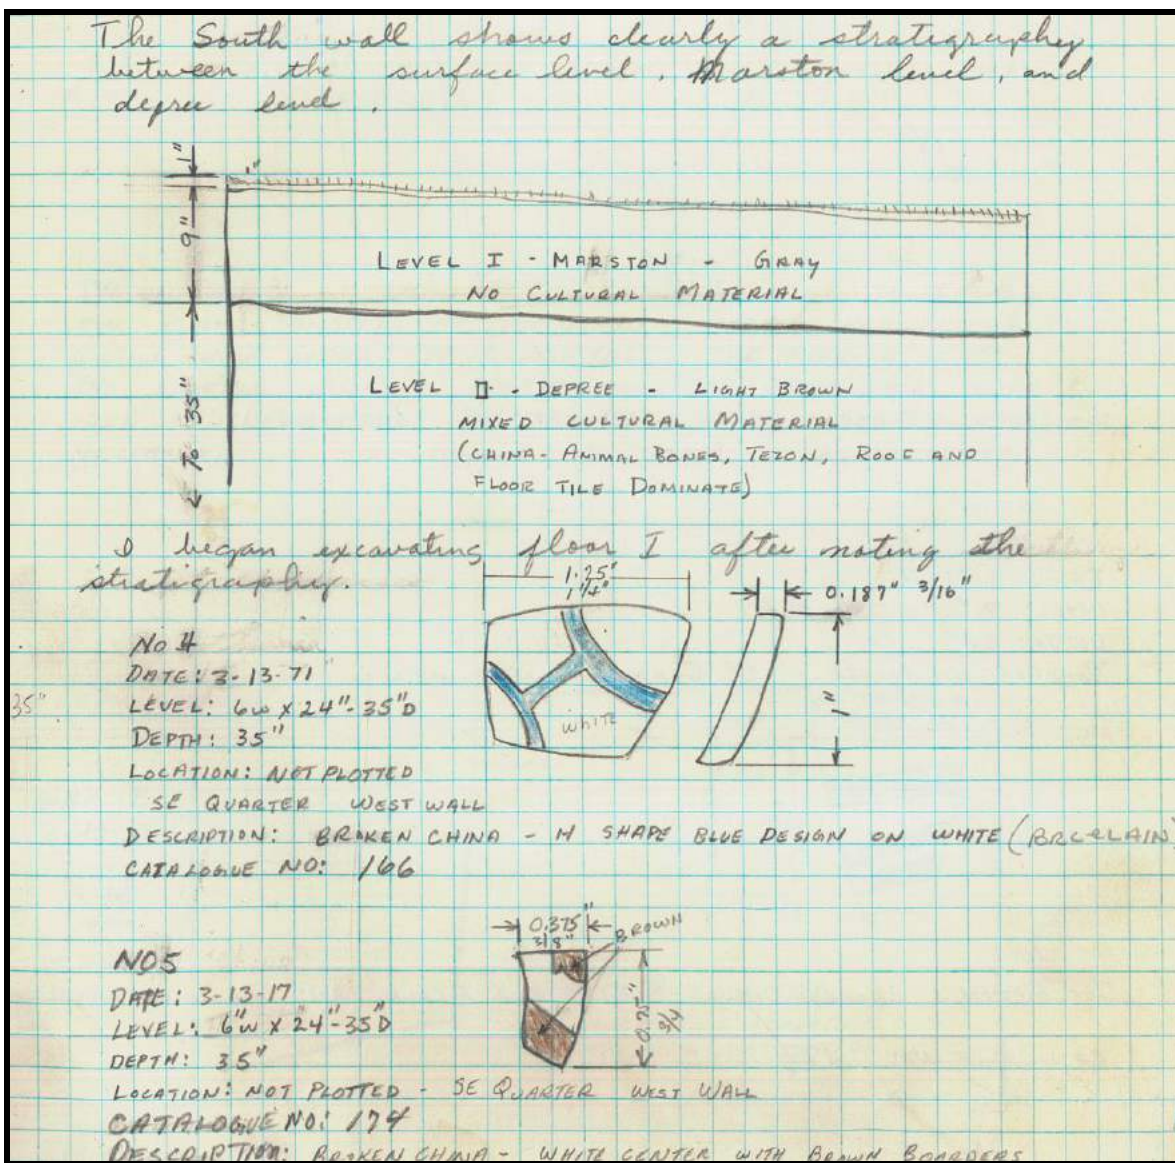 The South wall shows clearly a stratigraphy
between the surface level, Marston level, and
depree level.
1"
1"
9"
LEVEL I - MARSTON - GRAY
NO CULTURAL MATERIAL
← TO 35"
LEVEL II - DEPREE - LIGHT BROWN
MIXED CULTURAL MATERIAL
(CHINA- ANIMAL BONES, TEZON, ROOF AND
FLOOR TILE DOMINATE)
I began excavating floor I after noting the
stratigraphy.
1.25"
1 1/4"
0.187" 3/16"
1"
WHITE
35"
NO 4
DATE: 3-13-71
LEVEL: 6W X 24"-35"D
DEPTH: 35"
LOCATION: NOT PLOTTED
SE QUARTER WEST WALL
DESCRIPTION: BROKEN CHINA - H SHAPE BLUE DESIGN ON WHITE
CATALOGUE NO: 166
0.375"
3/8"
BROWN
0.75"
3/4
NO5
DATE: 3-13-17
LEVEL: 6"W X 24"-35"D
DEPTH: 35"
LOCATION: NOT PLOTTED - SE QUARTER WEST WALL
CATALOGUE NO: 174
DESCRIPTION: BROKEN CHINA - WHITE CENTER WITH BROWN BOARDERS